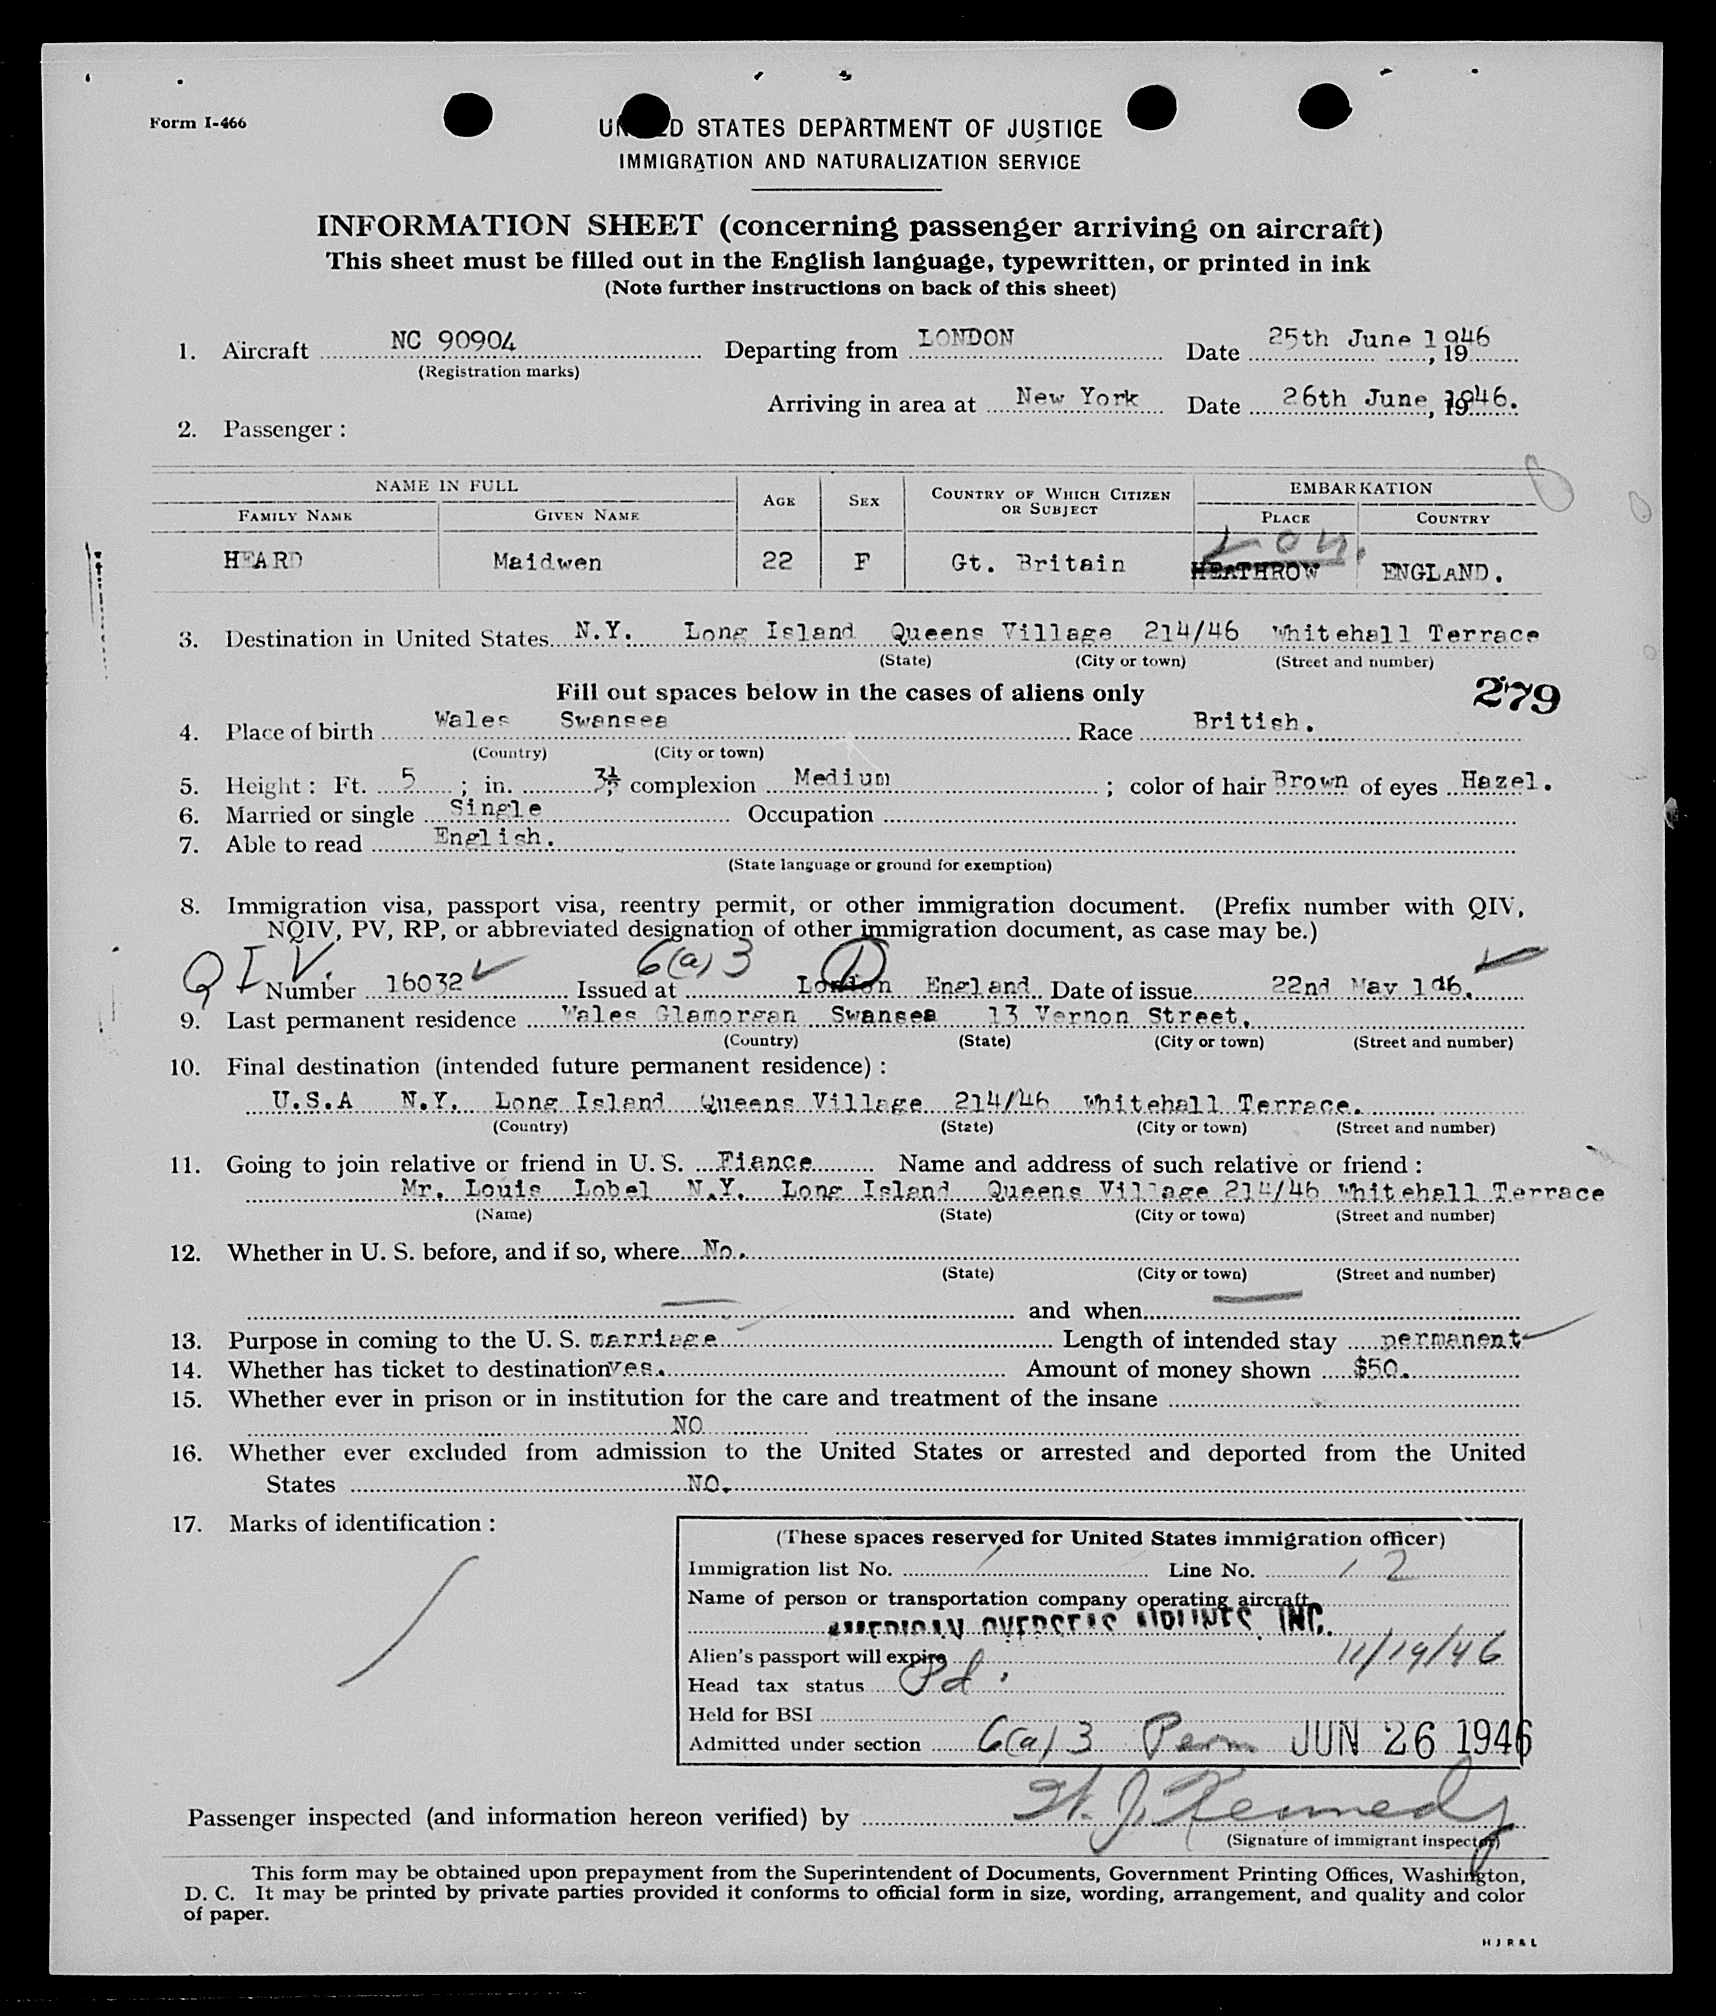 Form I-466
UNITED STATES DEPARTMENT OF JUSTICE
IMMIGRATION AND NATURALIZATION SERVICE
INFORMATION SHEET (concerning passenger arriving on aircraft)
This sheet must be filled out in the English language, typewritten, or printed in ink
(Note further instructions on back of this sheet)
1. Aircraft NC 90904 Departing from LONDON Date 25th June 1946, 19
(Registration marks)
Arriving in area at New York Date 26th June, 1946.
2. Passenger :
NAME IN FULL AGE SEX COUNTRY OF WHICH CITIZEN OR SUBJECT EMBARKATION
FAMILY NAME GIVEN NAME PLACE COUNTRY
Lon.
HEARD Maidwen 22 F Gt. Britain HEATHROW ENGLAND.
3. Destination in United States N.Y. Long Island Queens Village 214/46 Whitehall Terrace
(State) (City or town) (Street and number)
Fill out spaces below in the cases of aliens only
279
4. Place of birth Wales Swansea Race British.
(Country) (City or town)
5. Height : Ft. 5 ; in. 3½ ; complexion Medium ; color of hair Brown of eyes Hazel.
6. Married or single Single Occupation
7. Able to read English.
(State language or ground for exemption)
8. Immigration visa, passport visa, reentry permit, or other immigration document. (Prefix number with QIV,
NQIV, PV, RP, or abbreviated designation of other immigration document, as case may be.)
QIV. 6(a)3 D
Number 16032 Issued at London England Date of issue 22nd May 146.
9. Last permanent residence Wales Glamorgan Swansea 13 Vernon Street.
(Country) (State) (City or town) (Street and number)
10. Final destination (intended future permanent residence) :
U.S.A N.Y. Long Island Queens Village 214/46 Whitehall Terrace.
(Country) (State) (City or town) (Street and number)
11. Going to join relative or friend in U. S. Fiance Name and address of such relative or friend :
Mr. Louis Lobel N.Y. Long Island Queens Village 214/46 Whitehall Terrace
(Name) (State) (City or town) (Street and number)
12. Whether in U. S. before, and if so, where No.
(State) (City or town) (Street and number)
and when
13. Purpose in coming to the U. S. marriage Length of intended stay permanent
14. Whether has ticket to destination yes. Amount of money shown $50.
15. Whether ever in prison or in institution for the care and treatment of the insane
NO
16. Whether ever excluded from admission to the United States or arrested and deported from the United
States NO.
17. Marks of identification :
(These spaces reserved for United States immigration officer)
Immigration list No. 1 Line No. 12
Name of person or transportation company operating aircraft
AMERICAN OVERSEAS AIRLINES, INC.
Alien's passport will expire 11/19/46
Head tax status Pd.
Held for BSI
Admitted under section 6(a)3 Perm JUN 26 1946
Passenger inspected (and information hereon verified) by H. J. Kennedy
(Signature of immigrant inspector)
This form may be obtained upon prepayment from the Superintendent of Documents, Government Printing Offices, Washington,
D. C. It may be printed by private parties provided it conforms to official form in size, wording, arrangement, and quality and color
of paper.
H J R & L